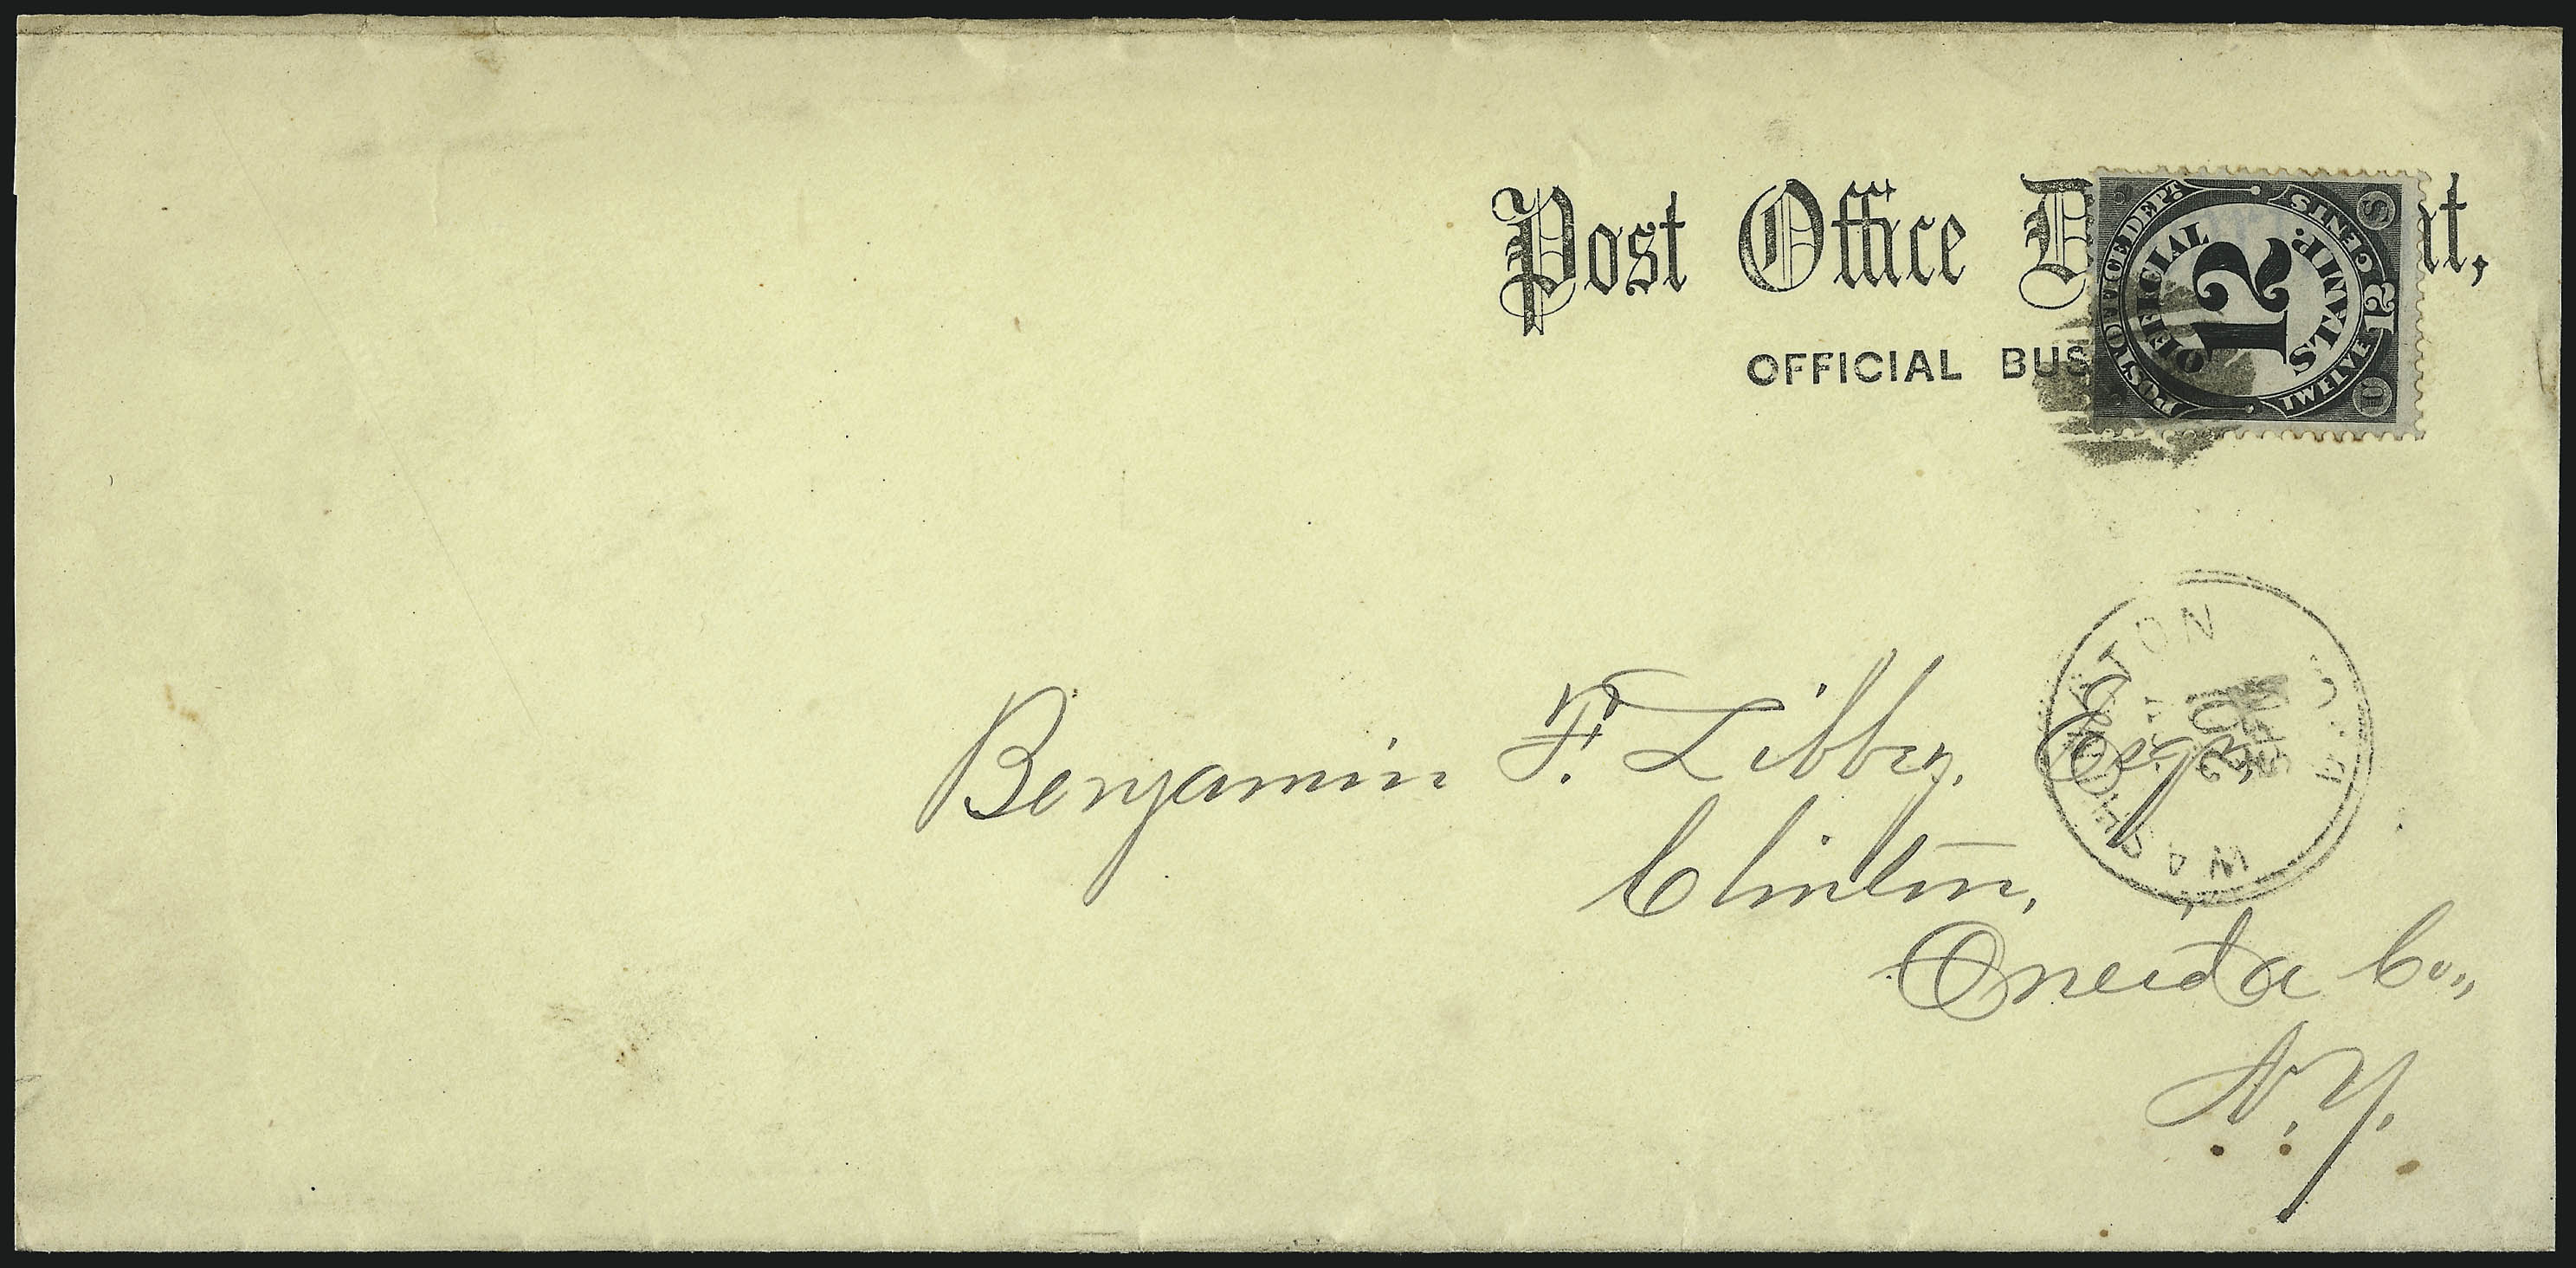 Post Office D t,
OFFICIAL BUS
POST OFFICE DEPT
OFFICIAL
12
STAMP.
U 12 S
TWELVE CENTS
WASHINGTON
Benjamin F. Libbey, Esqr,
Clinton,
Oneida Co.,
N.Y.